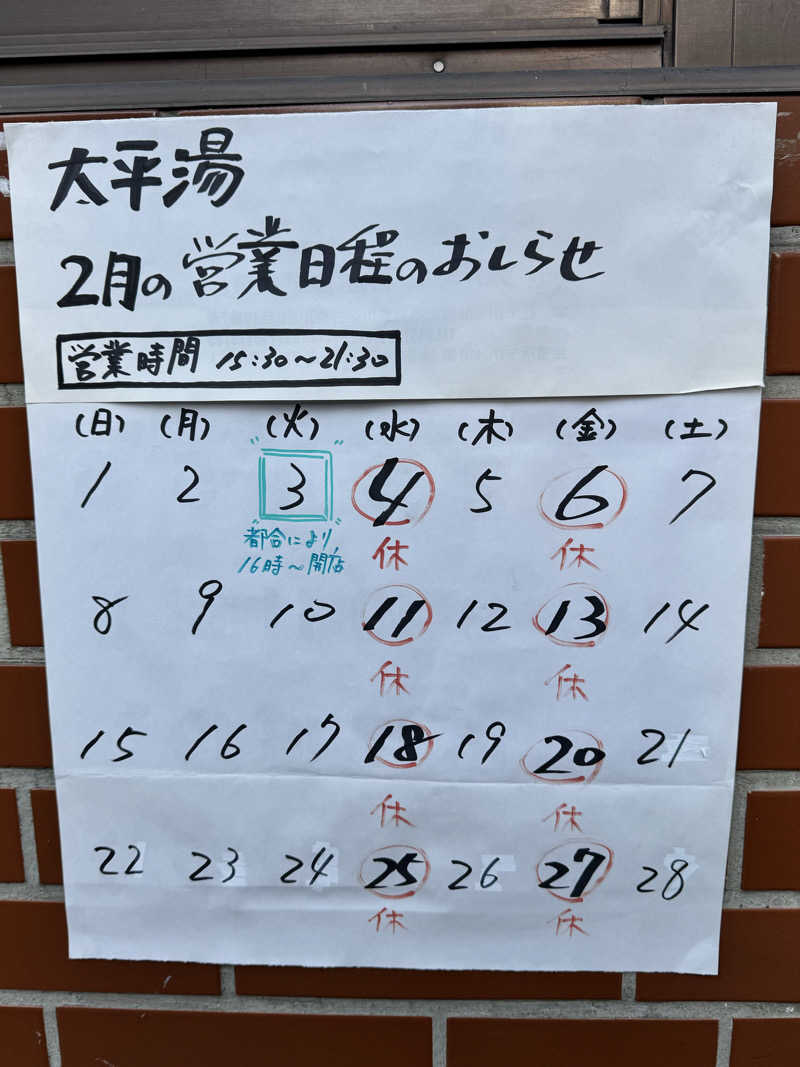 太平湯
2月の営業日程のおしらせ
営業時間 15:30〜21:30
(日) (月) (火) (水) (木) (金) (土)
1 2 3 4 5 6 7
都合により 休 休
16時〜開店
8 9 10 11 12 13 14
休 休
15 16 17 18 19 20 21
休 休
22 23 24 25 26 27 28
休 休